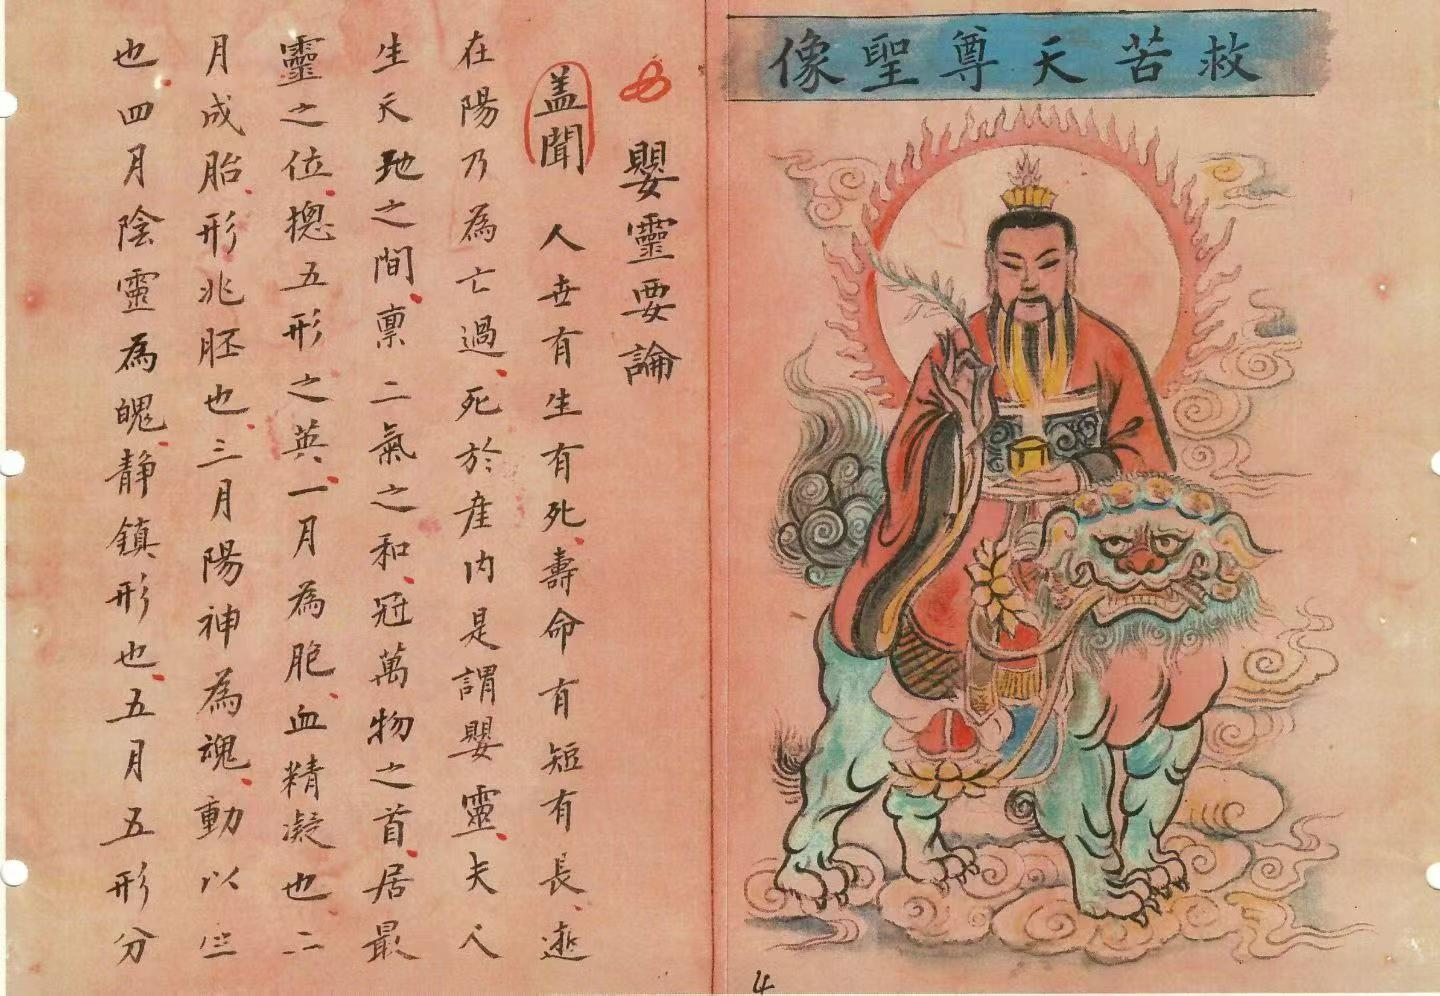 救苦天尊聖像
嬰靈要論
盖聞 人世有生有死壽命有短有長逝
在陽乃為亡過死於產內是謂嬰靈夫人
生天地之間禀二氣之和冠萬物之首居最
靈之位摠五形之英一月為胞血精凝也二
月成胎形兆胚也三月陽神為魂動以
也四月陰靈為魄静鎮形也五月五形分
4